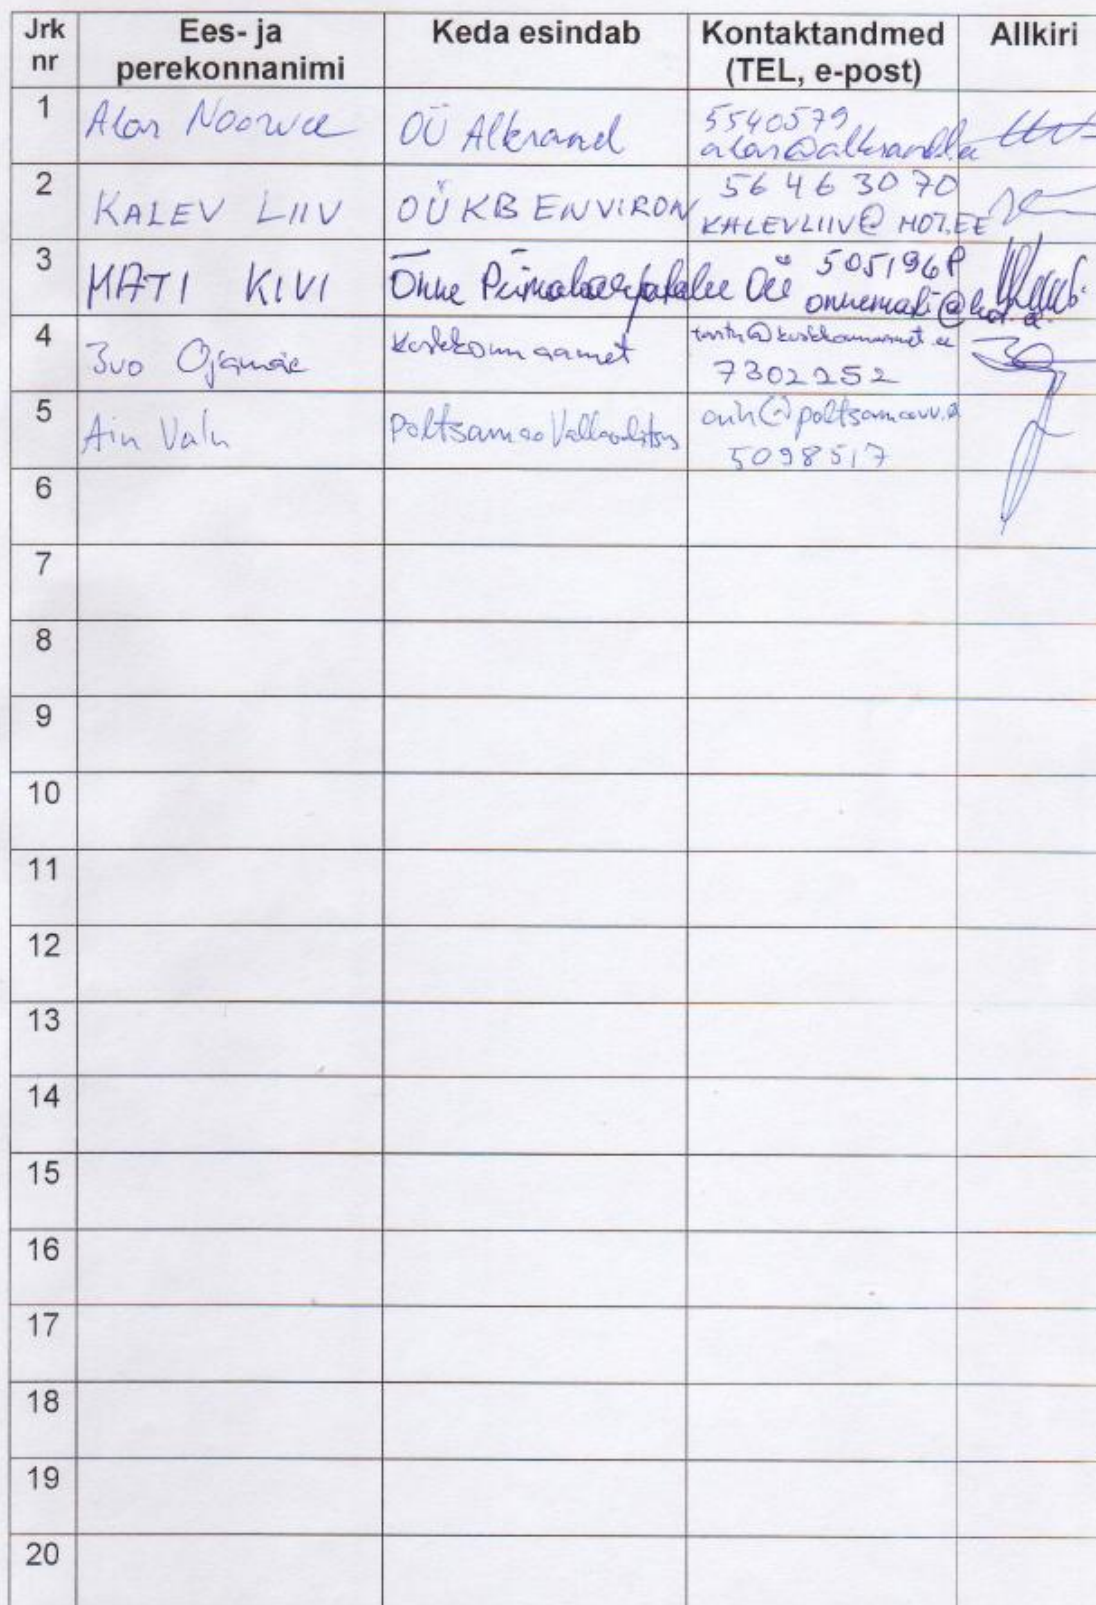 Jrk nr Ees- ja perekonnanimi Keda esindab Kontaktandmed (TEL, e-post) Allkiri
1 Alar Noorvee OÜ Alkranel 5540579
alar@alkranel.ee
2 KALEV LIIV OÜ KB ENVIRON 56 46 30 70
KALEVLIIV@HOT.EE
3 MATI KIVI Õnne Piimakarjatalu OÜ 5051968
onnemati@hot.ee
4 Ivo Ojamäe Keskkonnaamet
7302252
5 Ain Valu Põltsamaa Vallavalitsus
5098517
6
7
8
9
10
11
12
13
14
15
16
17
18
19
20